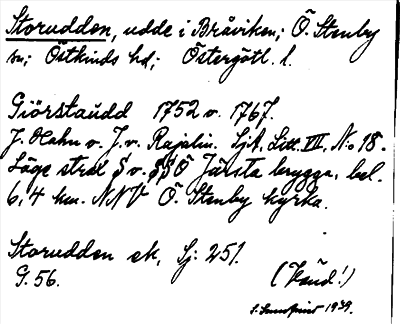 Storudden, udde i Bråviken; Ö. Stenby
sn; Östkinds hd; Östergötl. l.
Giörstaudd 1752 v. 1767.
J. Hahn v. J. v. Rajalin. Sjk. Litt. VII, No 18.
Läge strax S v. SSO Järsta brygga, bel.
6,4 km. NNV Ö. Stenby kyrka.
Storudden ek, Sj: 251.
G. 56. (Känd!)
1939.